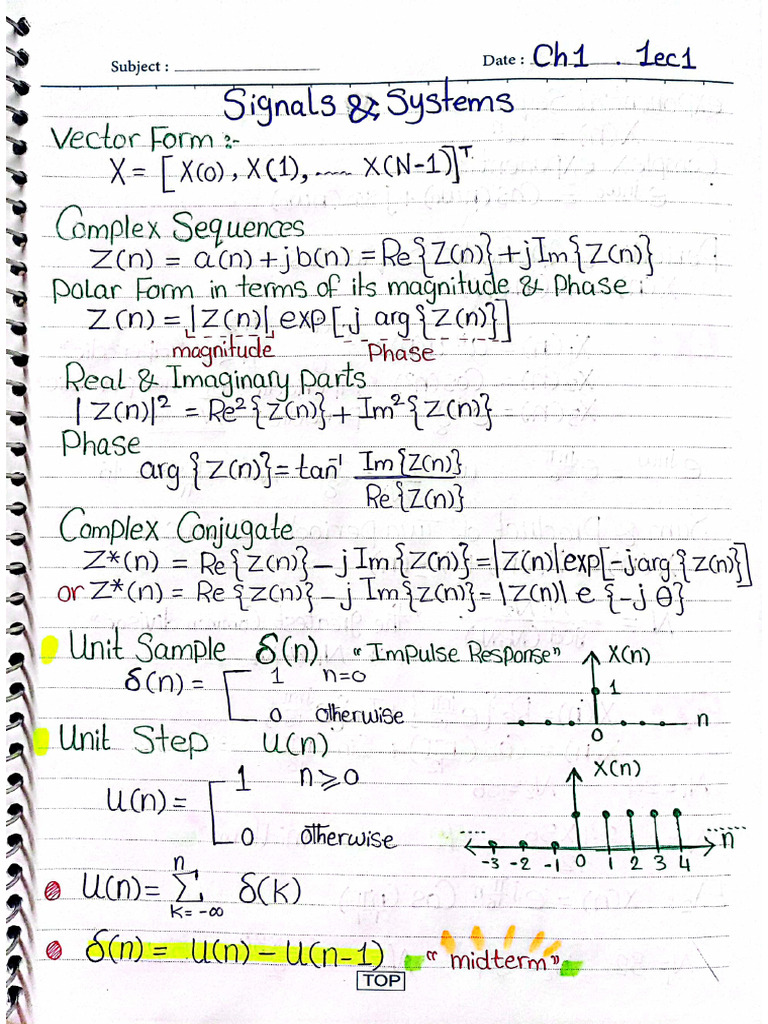 Subject :
Date : Ch1 . lec1
Signals & Systems
Vector Form :-
X = [X(0), X(1), ..... X(N-1)]ᵀ
Complex Sequences
Z(n) = a(n) + jb(n) = Re{Z(n)} + jIm{Z(n)}
Polar Form in terms of its magnitude & Phase :
Z(n) = |Z(n)| exp[j arg{Z(n)}]
magnitude Phase
Real & Imaginary parts
|Z(n)|² = Re²{Z(n)} + Im²{Z(n)}
Phase
arg{Z(n)} = tan⁻¹ Im{Z(n)}
Re{Z(n)}
Complex Conjugate
Z*(n) = Re{Z(n)} - jIm{Z(n)} = |Z(n)| exp[-jarg{Z(n)}]
or Z*(n) = Re{Z(n)} - j Im{Z(n)} = |Z(n)| e {-jθ}
Unit Sample δ(n) "Impulse Response" X(n)
δ(n) = 1 n=0
1
0 otherwise
n
0
Unit Step U(n)
X(n)
U(n) = 1 n≥0
0 otherwise
..... ..... n
-3 -2 -1 0 1 2 3 4
U(n) = n Σ k=-∞ δ(k)
δ(n) = U(n) - U(n-1) "midterm"
TOP